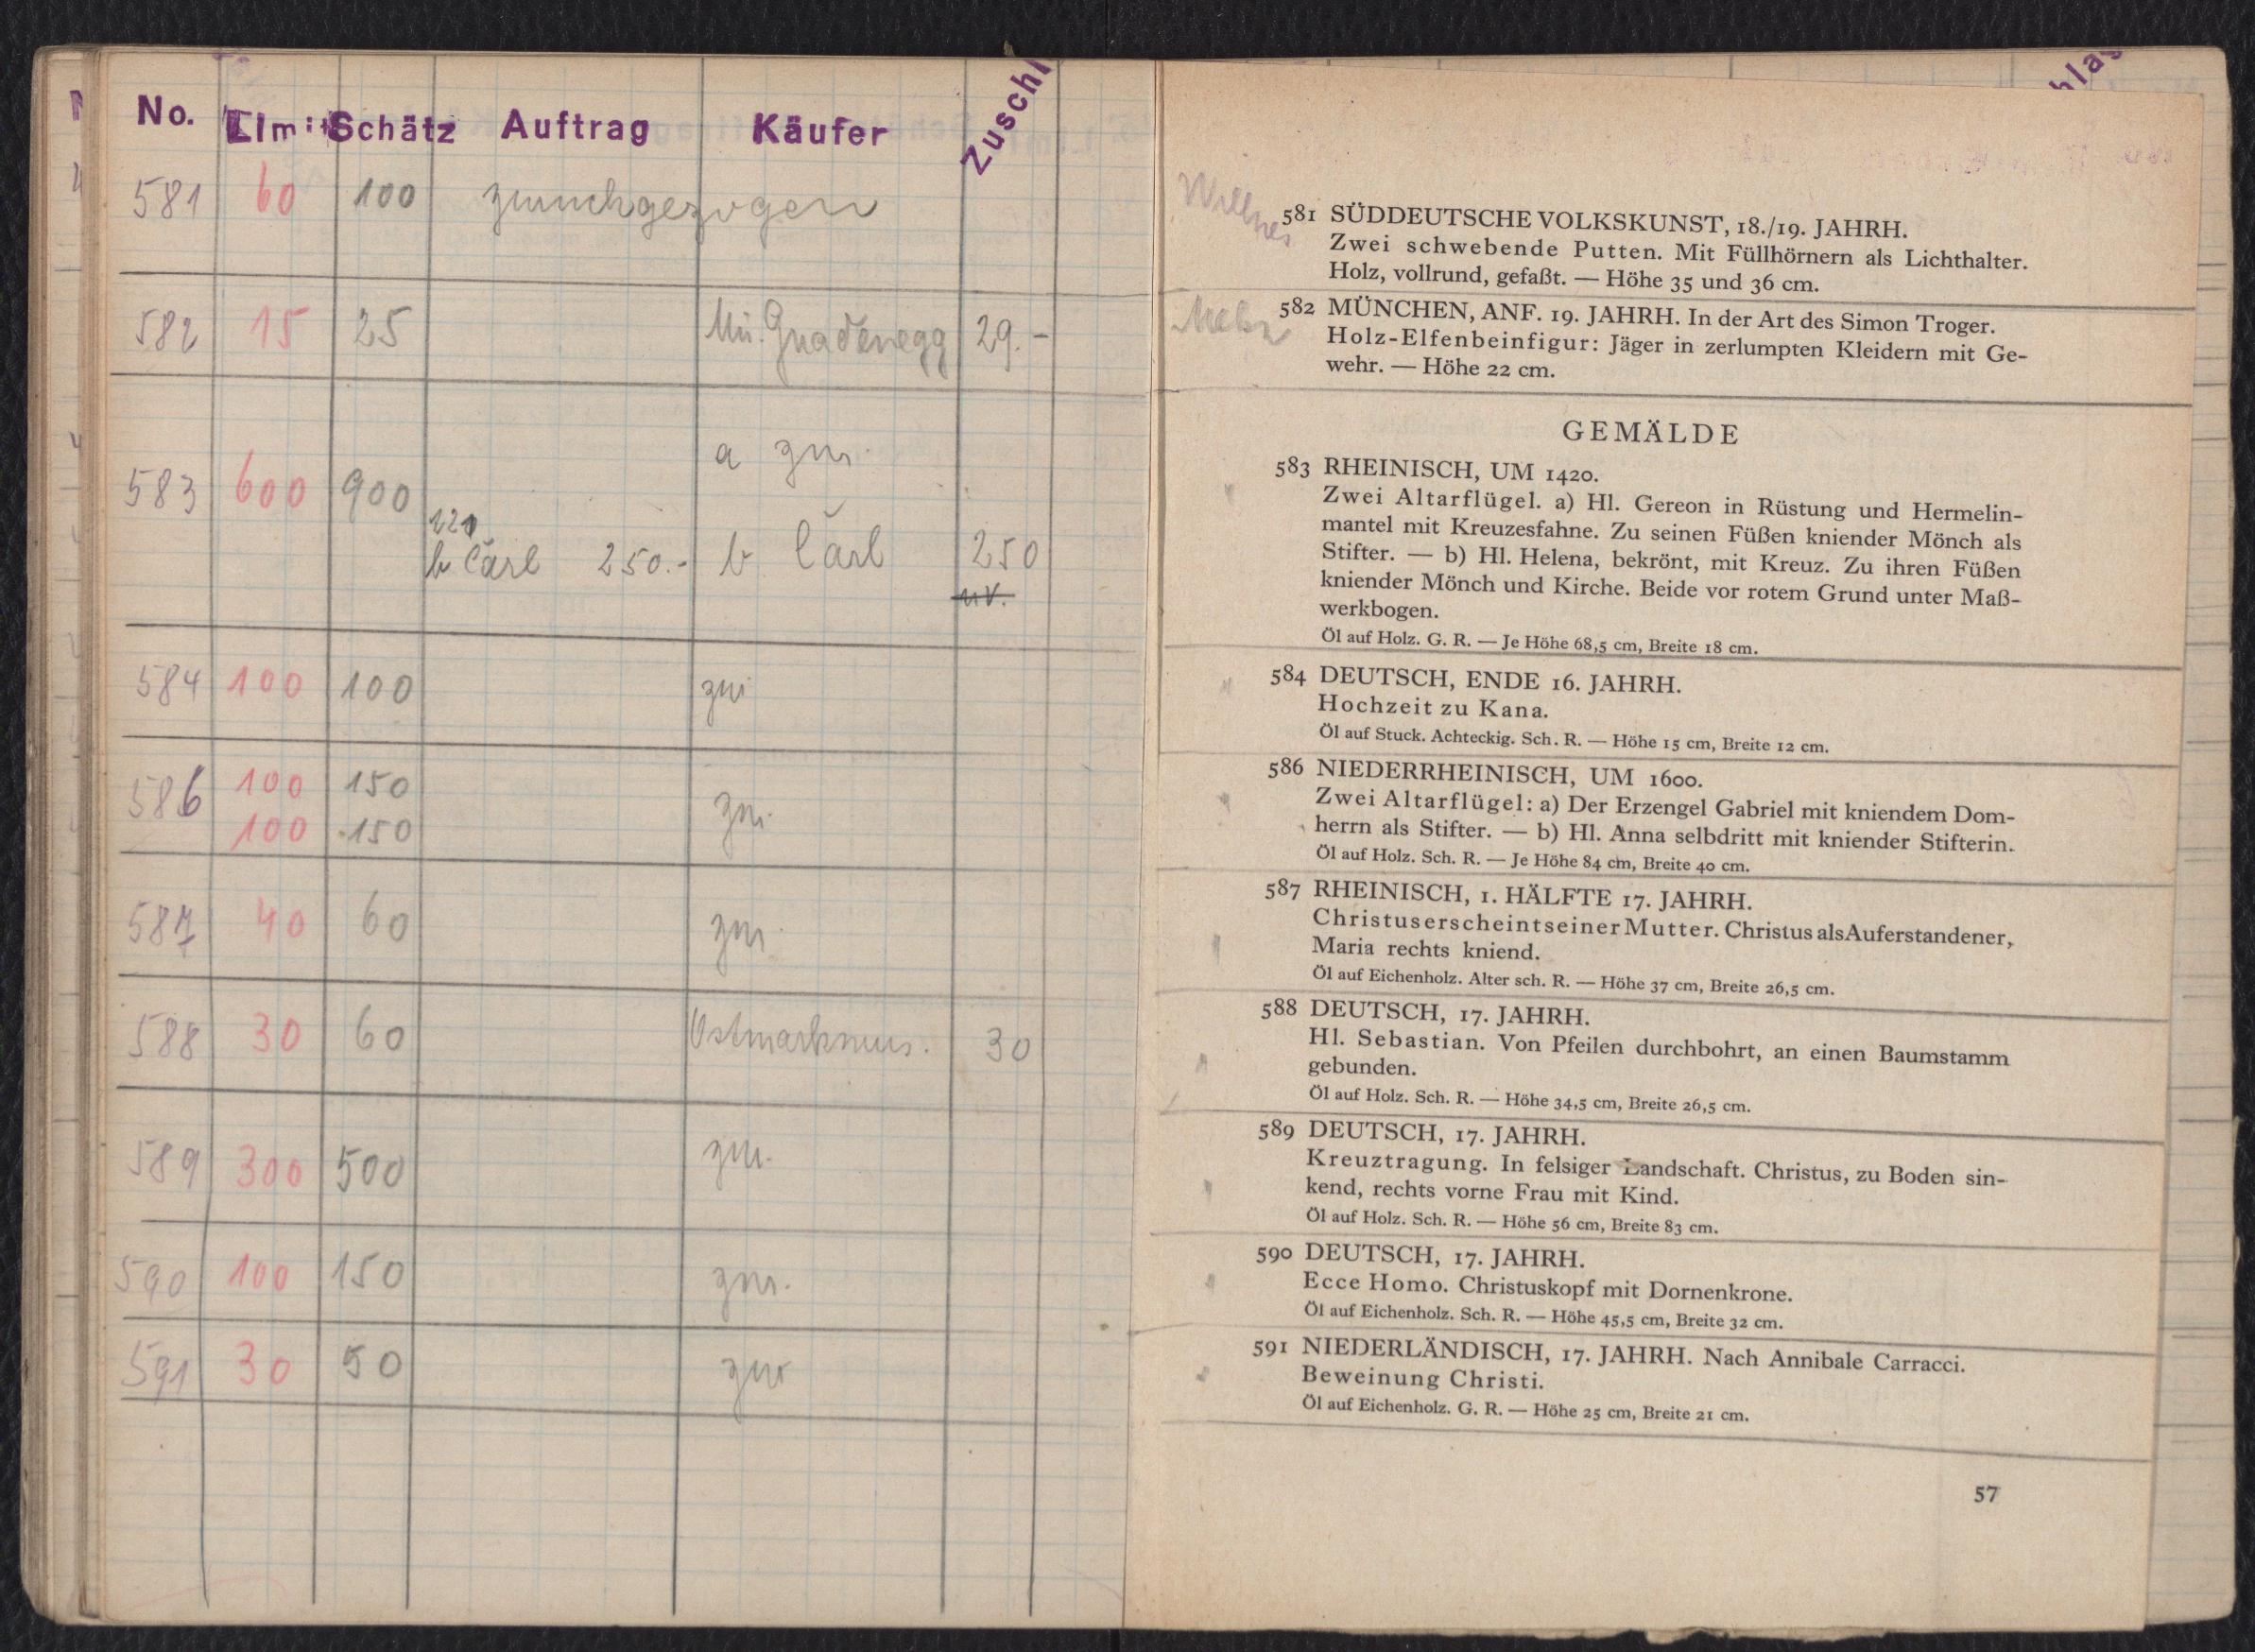 No. Limit Schätz Auftrag Käufer Zuschl
581 60 100 zurückgezogen
582 15 25 Mü. Gnadenegg 29.-
a zur.
583 600 900
121
b Carl 250.- b Carl 250
584 100 100 zur
586 100 150 zur.
100 150
587 40 60 zur.
588 30 60 Ostmarkmus. 30
589 300 500 zur.
590 100 150 zur.
591 30 50 zur
hlag
581 SÜDDEUTSCHE VOLKSKUNST, 18./19. JAHRH.
Zwei schwebende Putten. Mit Füllhörnern als Lichthalter.
Holz, vollrund, gefaßt. — Höhe 35 und 36 cm.
582 MÜNCHEN, ANF. 19. JAHRH. In der Art des Simon Troger.
Holz-Elfenbeinfigur: Jäger in zerlumpten Kleidern mit Ge-
wehr. — Höhe 22 cm.
GEMÄLDE
583 RHEINISCH, UM 1420.
Zwei Altarflügel. a) Hl. Gereon in Rüstung und Hermelin-
mantel mit Kreuzesfahne. Zu seinen Füßen kniender Mönch als
Stifter. — b) Hl. Helena, bekrönt, mit Kreuz. Zu ihren Füßen
kniender Mönch und Kirche. Beide vor rotem Grund unter Maß-
werkbogen.
Öl auf Holz. G. R. — Je Höhe 68,5 cm, Breite 18 cm.
584 DEUTSCH, ENDE 16. JAHRH.
Hochzeit zu Kana.
Öl auf Stuck. Achteckig. Sch. R. — Höhe 15 cm, Breite 12 cm.
586 NIEDERRHEINISCH, UM 1600.
Zwei Altarflügel: a) Der Erzengel Gabriel mit kniendem Dom-
herrn als Stifter. — b) Hl. Anna selbdritt mit kniender Stifterin.
Öl auf Holz. Sch. R. — Je Höhe 84 cm, Breite 40 cm.
587 RHEINISCH, 1. HÄLFTE 17. JAHRH.
Christus erscheint seiner Mutter. Christus als Auferstandener,
Maria rechts kniend.
Öl auf Eichenholz. Alter sch. R. — Höhe 37 cm, Breite 26,5 cm.
588 DEUTSCH, 17. JAHRH.
Hl. Sebastian. Von Pfeilen durchbohrt, an einen Baumstamm
gebunden.
Öl auf Holz. Sch. R. — Höhe 34,5 cm, Breite 26,5 cm.
589 DEUTSCH, 17. JAHRH.
Kreuztragung. In felsiger Landschaft. Christus, zu Boden sin-
kend, rechts vorne Frau mit Kind.
Öl auf Holz. Sch. R. — Höhe 56 cm, Breite 83 cm.
590 DEUTSCH, 17. JAHRH.
Ecce Homo. Christuskopf mit Dornenkrone.
Öl auf Eichenholz. Sch. R. — Höhe 45,5 cm, Breite 32 cm.
591 NIEDERLÄNDISCH, 17. JAHRH. Nach Annibale Carracci.
Beweinung Christi.
Öl auf Eichenholz. G. R. — Höhe 25 cm, Breite 21 cm.
57